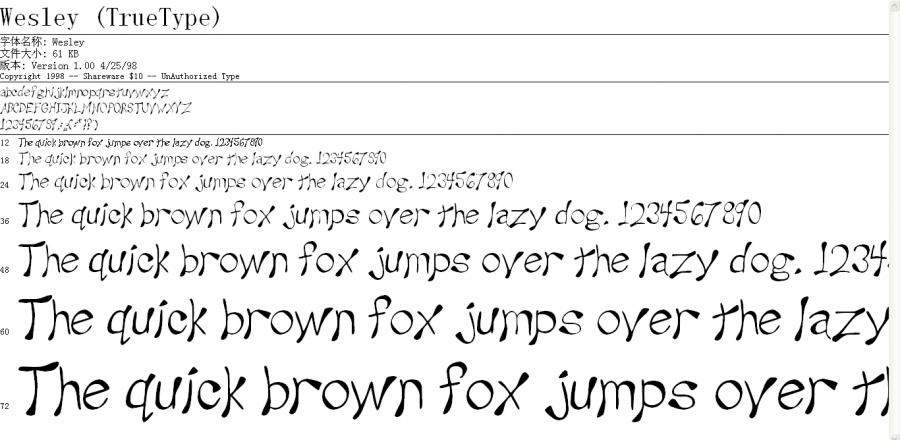 Wesley (TrueType)
字体名称: Wesley
文件大小: 61 KB
版本: Version 1.00 4/25/98
Copyright 1998 -- Shareware $10 -- UnAuthorized Type
abcdefghijklmnopqrstuvwxyz
ABCDEFGHIJKLMNOPQRSTUVWXYZ
12 The quick brown fox jumps over the lazy dog. 1234567890
18 The quick brown fox jumps over the lazy dog. 1234567890
24 The quick brown fox jumps over the lazy dog. 1234567890
36 The quick brown fox jumps over the lazy dog. 1234567890
48 The quick brown fox jumps over the lazy dog. 1234
60 The quick brown fox jumps over the lazy
72 The quick brown fox jumps over th